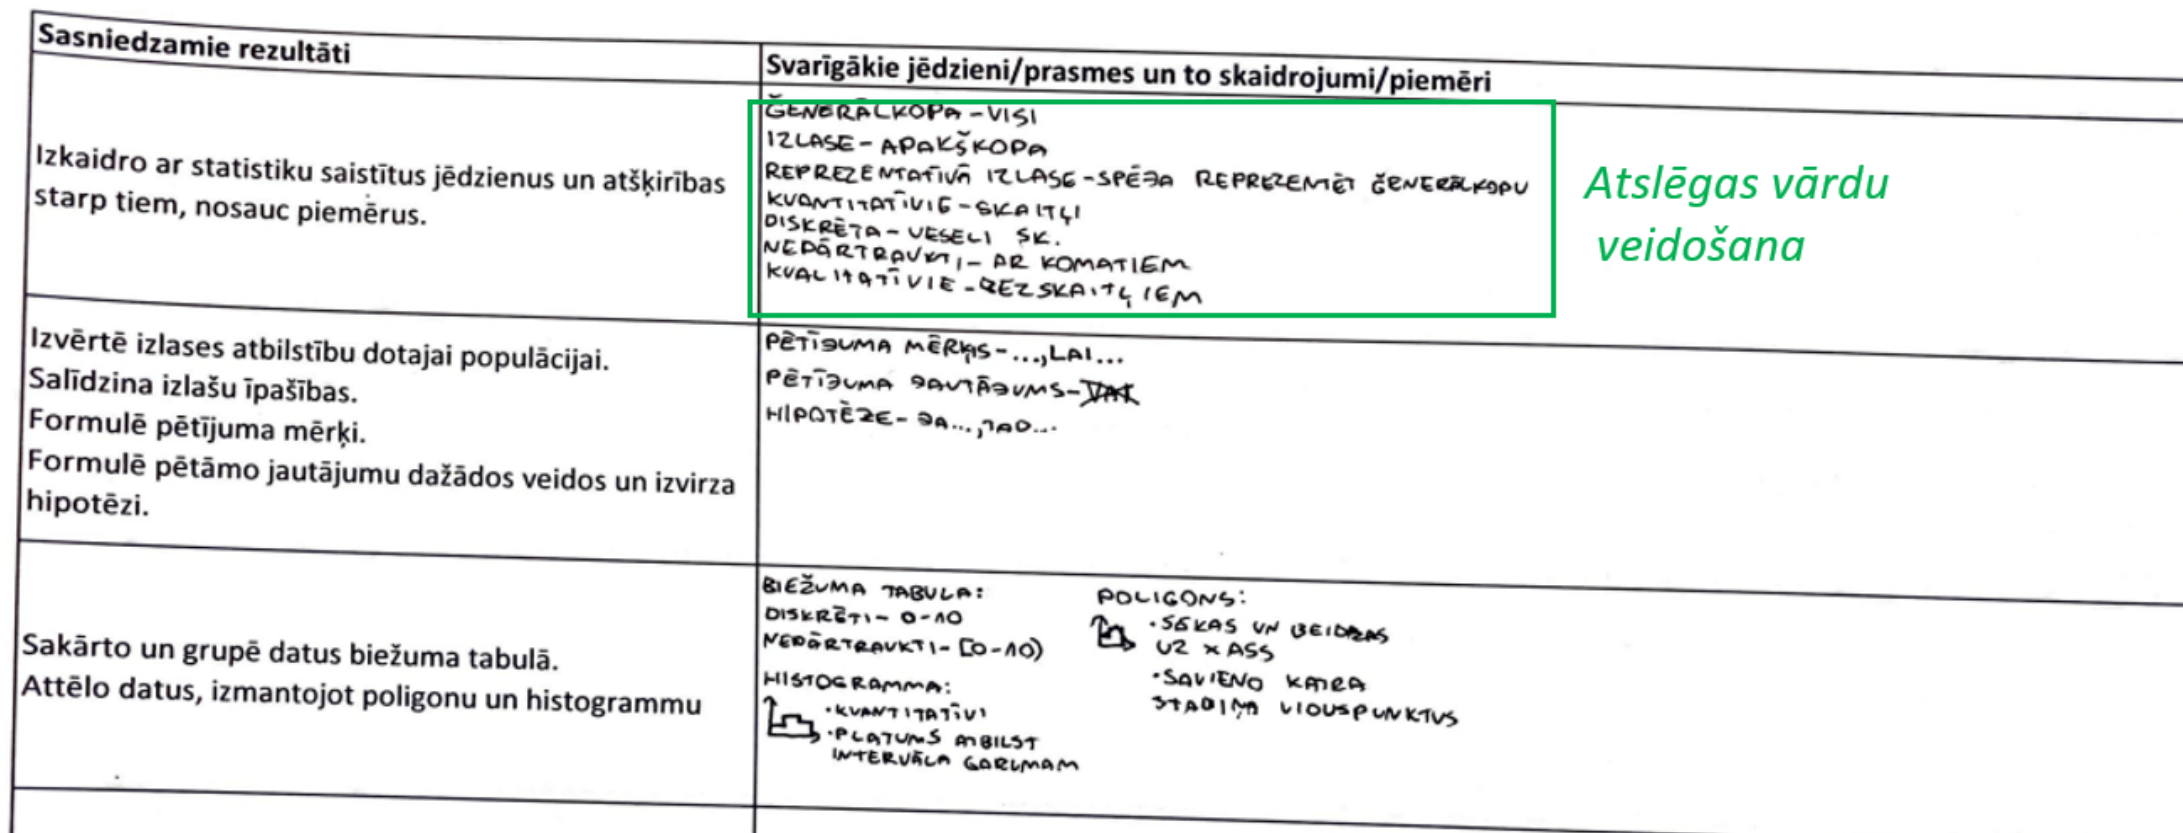 Sasniedzamie rezultāti
Svarīgākie jēdzieni/prasmes un to skaidrojumi/piemēri
Izkaidro ar statistiku saistītus jēdzienus un atšķirības
starp tiem, nosauc piemērus.
ĢENERĀLKOPA - VISI
IZLASE - APAKŠKOPA
REPREZENTATĪVĀ IZLASE - SPĒJA REPREZENTĒT ĢENERĀLKOPU
KVANTITATĪVIE - SKAITĻI
DISKRĒTA - VESELI SK.
NEPĀRTRAUKTI - AR KOMATIEM
KVALITATĪVIE - BEZ SKAITĻIEM
Atslēgas vārdu
veidošana
Izvērtē izlases atbilstību dotajai populācijai.
Salīdzina izlašu īpašības.
Formulē pētījuma mērķi.
Formulē pētāmo jautājumu dažādos veidos un izvirza
hipotēzi.
PĒTĪJUMA MĒRĶIS - ..., LAI ...
PĒTĪJUMA JAUTĀJUMS -
HIPOTĒZE - JA ..., TAD ...
Sakārto un grupē datus biežuma tabulā.
Attēlo datus, izmantojot poligonu un histogrammu
BIEŽUMA TABULA:
DISKRĒTI - 0-10
NEPĀRTRAUKTI - [0-10)
HISTOGRAMMA:
• KVANTITATĪVI
• PLATUMS ATBILST
INTERVĀLA GARUMAM
POLIGONS:
• SĀKAS UN BEIDZAS
UZ X ASS
• SAVIENO KATRA
STABIŅA VIDUSPUNKTUS